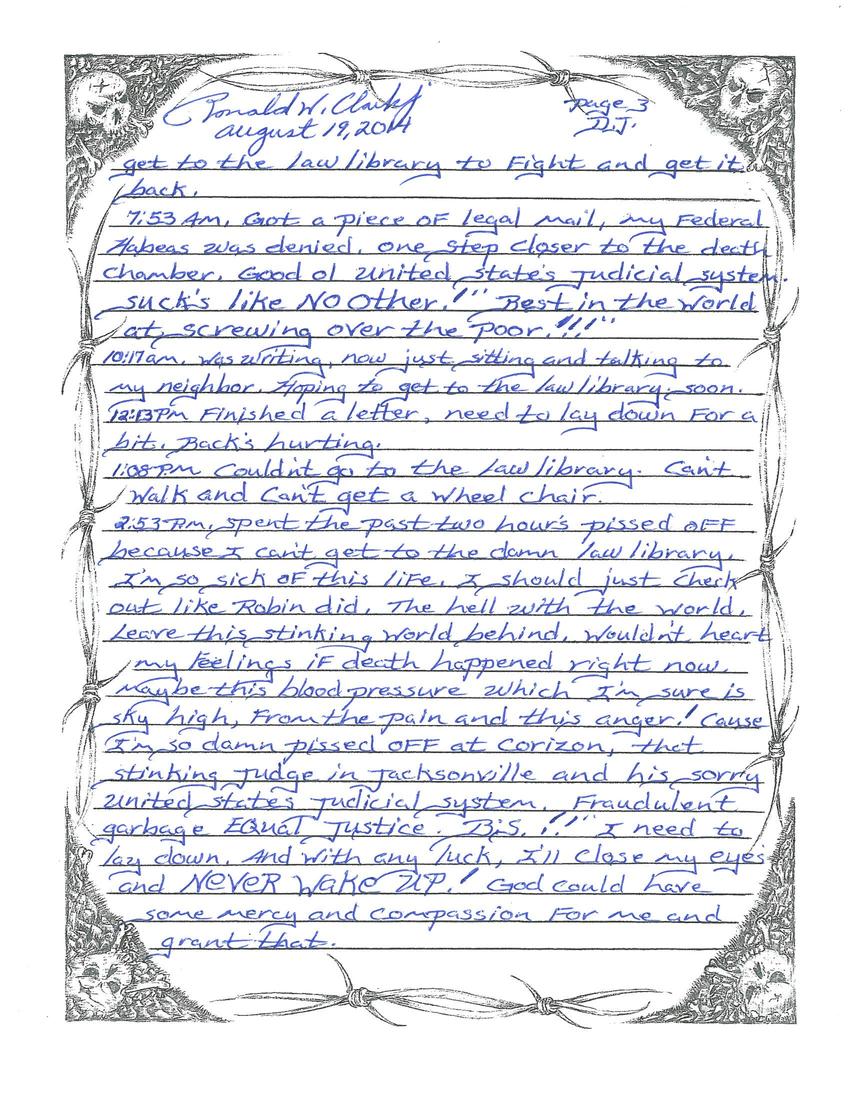 Ronald W. Clark Jr
page 3
August 19, 2014
D.J.
get to the law library to Fight and get it
back.
7:53 Am. Got a piece OF legal mail, my Federal
Habeas was denied. one step closer to the death
Chamber. Good ol United state's Judicial system.
suck's like NO Other!!" Best in the world
at screwing over the poor!!!"
10:17am. Was writing, now just sitting and talking to
my neighbor. Hoping to get to the law library soon.
12:13PM Finished a letter, need to lay down For a
bit. Back's hurting.
1:08 P.M. Couldn't go to the law library. Can't
Walk and Can't get a wheel chair.
2:53 P.m. spent the past two hour's pissed OFF
because I can't get to the damn law library.
I'm so sick OF this liFe. I should just Check
out like Robin did. The hell with the world.
Leave this stinking world behind. Wouldn't heart
my feelings iF death happened right now.
Maybe this blood pressure which I'm sure is
sky high, From the pain and this anger! Cause
I'm so damn pissed OFF at Corizon, that
stinking Judge in Jacksonville and his sorry
United state's Judicial system. Fraudulent
garbage EQual Justice. B.S.!!" I need to
lay down. And with any luck, I'll Close my eyes
and NeVeR WaKe UP! God could have
some mercy and Compassion For me and
grant that.